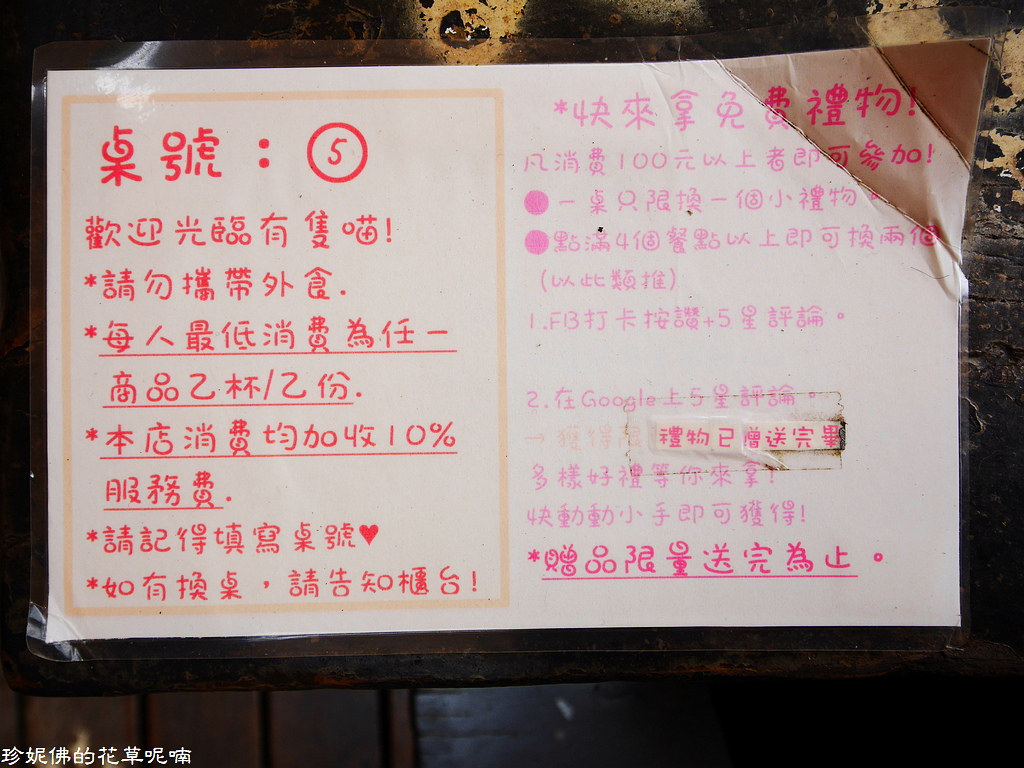 桌號：⑤
歡迎光臨有隻喵!
*請勿攜帶外食.
*每人最低消費為任一
商品乙杯/乙份.
*本店消費均加收10%
服務費.
*請記得填寫桌號♥
*如有換桌，請告知櫃台!
*快來拿免費禮物!
凡消費100元以上者即可參加!
●一桌只限換一個小禮物。
●點滿4個餐點以上即可換兩個
(以此類推)
1.FB打卡按讚+5星評論。
2.在Google上5星評論。
→獲得 禮物已贈送完畢
多樣好禮等你來拿!
快動動小手即可獲得!
*贈品限量送完為止。
珍妮佛的花草呢喃